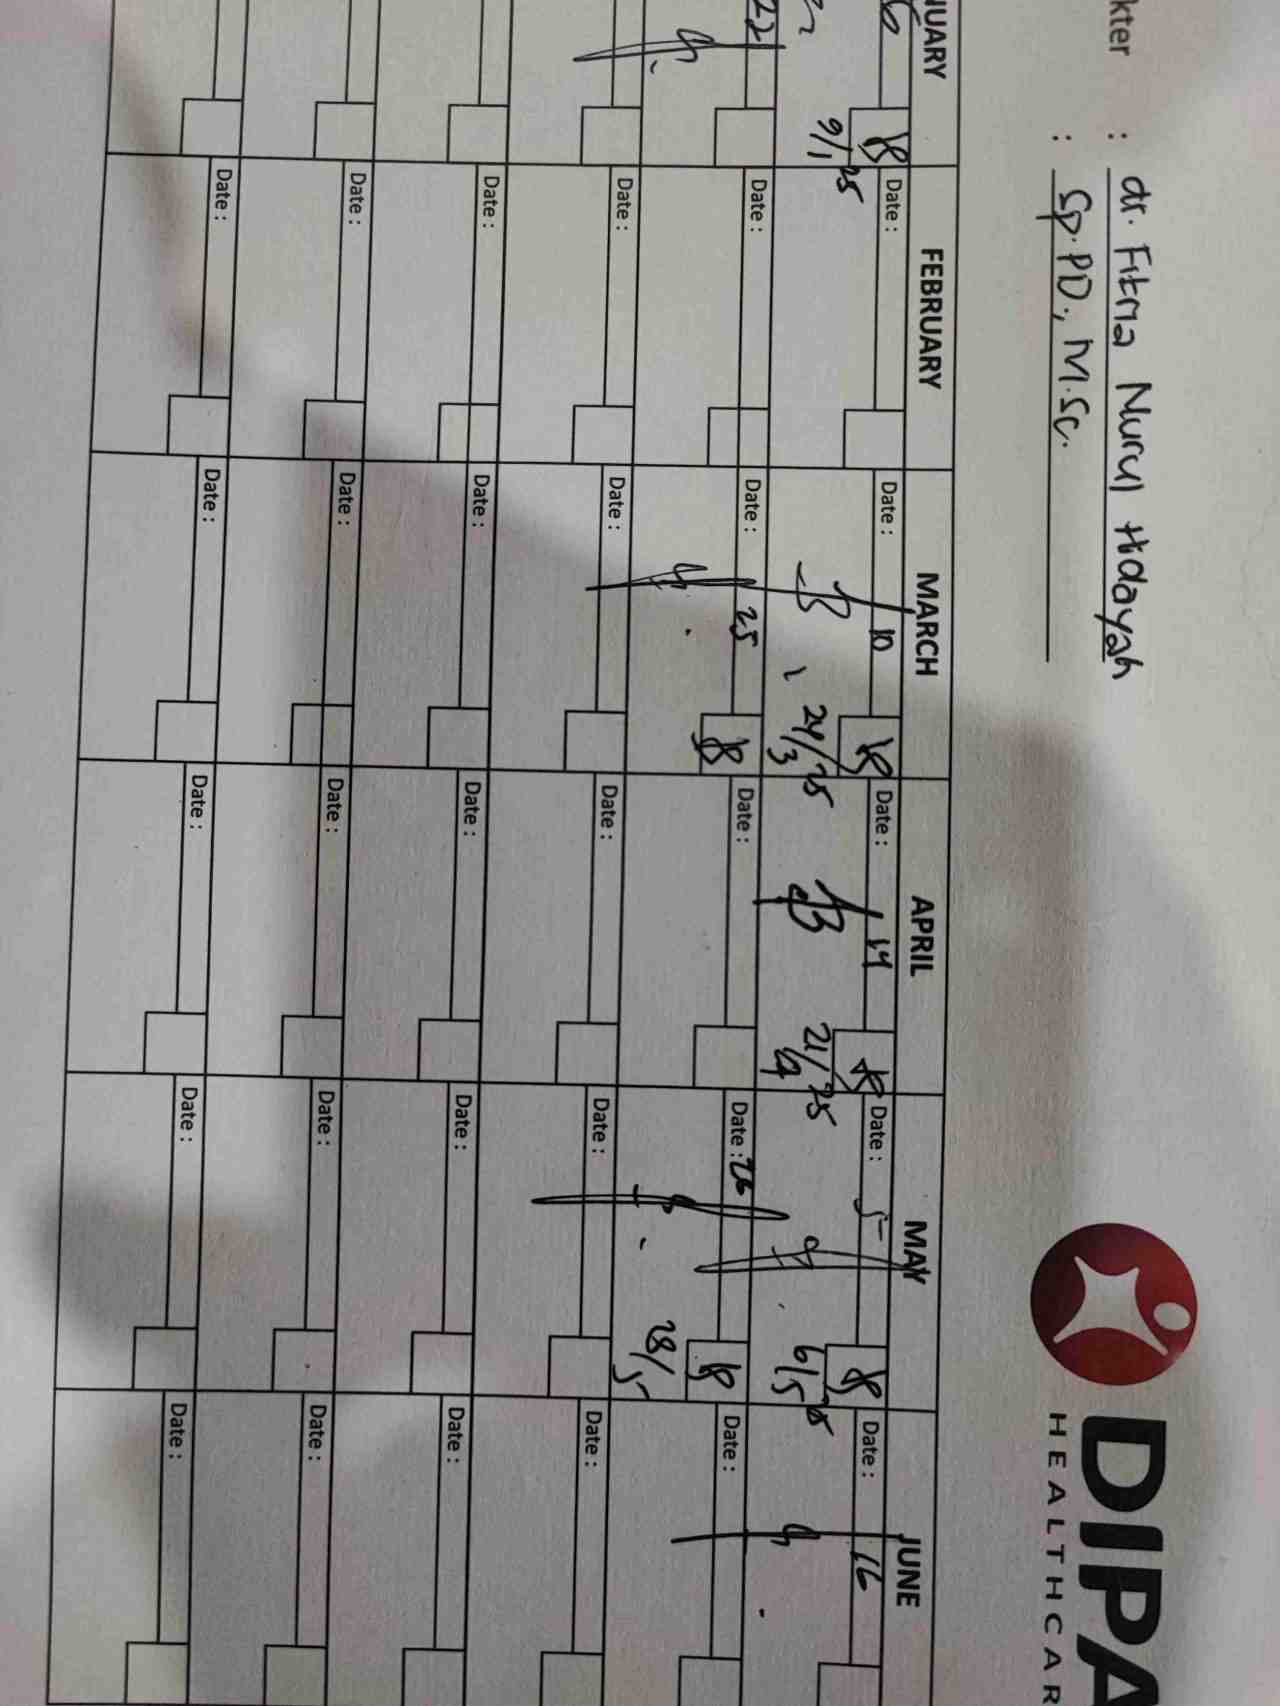 DIPA
HEALTHCAR
kter : dr. Fitria Nurul Hidayah
: Sp.PD., M.Sc.
NUARY FEBRUARY MARCH APRIL MAY JUNE
6 Date : Date : 10 Date : 14 Date : 5 Date : 16
9/1 25 24/3 25 21/4 25 6/5 25
22 Date : Date : 25 Date : Date : 26 Date :
28/5
Date : Date : Date : Date : Date :
Date : Date : Date : Date : Date :
Date : Date : Date : Date : Date :
Date : Date : Date : Date : Date :